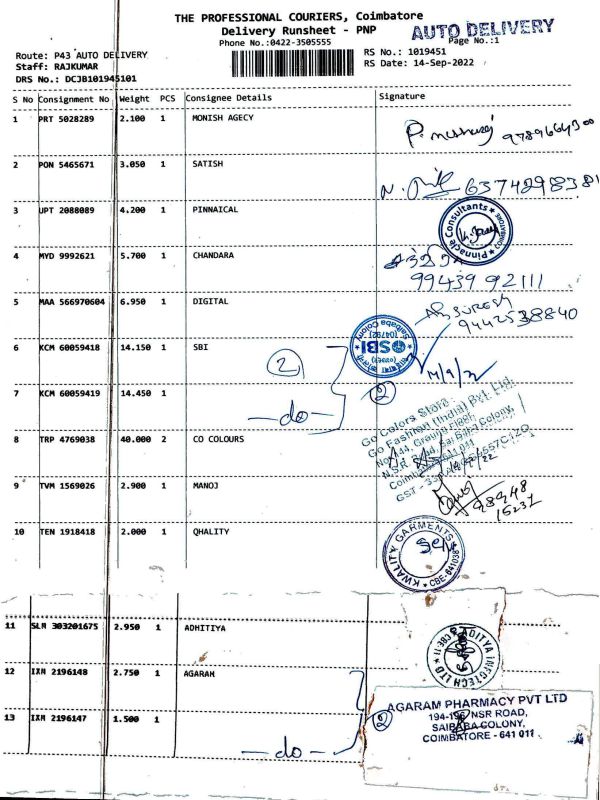 THE PROFESSIONAL COURIERS, Coimbatore
Delivery Runsheet - PNP
AUTO DELIVERY
Phone No.:0422-3505555
Page No.:1
Route: P43 AUTO DELIVERY
RS No.: 1019451
Staff: RAJKUMAR
RS Date: 14-Sep-2022
DRS No.: DCJB101945101
S No Consignment No Weight PCS Consignee Details Signature
1 PRT 5028289 2.100 1 MONISH AGECY
2 PON 5465671 3.050 1 SATISH
6374298381
3 UPT 2088089 4.200 1 PINNAICAL
Pinnacle Consultants
COIMBATORE
4 MYD 9992621 5.700 1 CHANDARA
99439 92111
5 MAA 566970604 6.950 1 DIGITAL
SURESH
9442538840
6 KCM 60059418 14.150 1 SBI
2
SBI
Saibaba Colony
(04792)
14/9/22
7 KCM 60059419 14.450 1
do
2
8 TRP 4769038 40.000 2 CO COLOURS
Go Colors Store
Go Fashion (India) Pvt Ltd
No. 144, Ground Floor,
N.S.R. Road, Sai Baba Colony,
Coimbatore 641 011
GST - 33
9 TVM 1569026 2.900 1 MANOJ
98948
15231
10 TEN 1918418 2.000 1 QHALITY
KWALITY GARMENTS
CBE-641038
11 SLM 303201675 2.950 1 ADHITIYA
ADITYA INFOTECH LTD
CBE-11
12 IXM 2196148 2.750 1 AGARAM
13 IXM 2196147 1.500 1
do
2
AGARAM PHARMACY PVT LTD
194-196 NSR ROAD,
SAIBABA COLONY,
COIMBATORE - 641 011